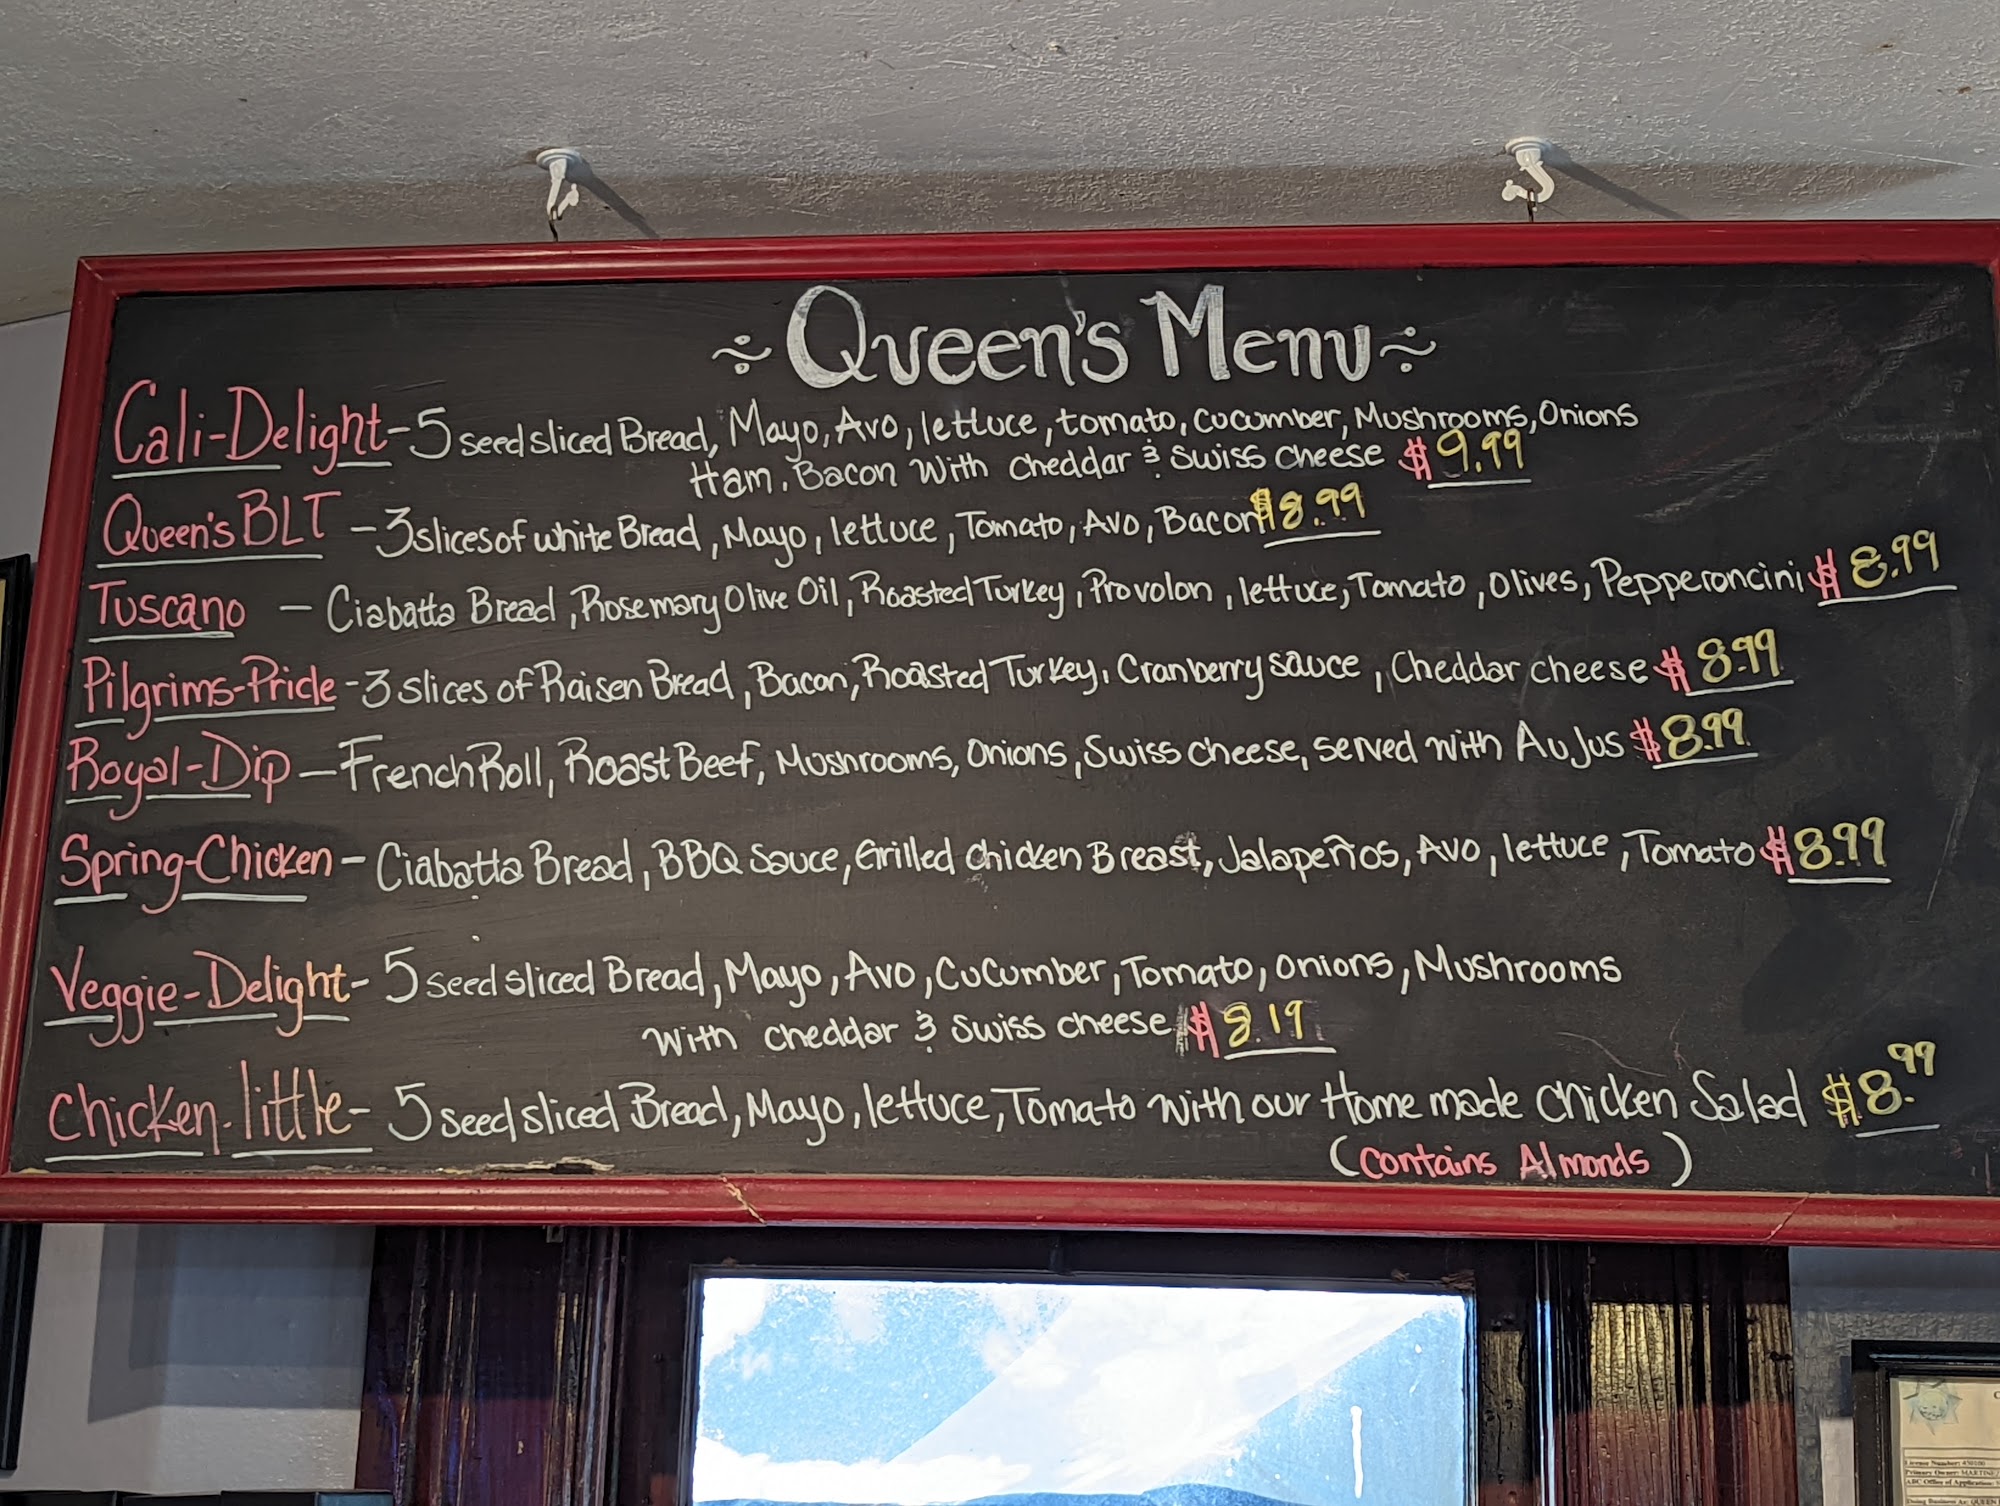 Queen's Menu
Cali-Delight - 5 seed sliced Bread, Mayo, Avo, lettuce, tomato, cucumber, Mushrooms, Onions
Ham, Bacon With cheddar & Swiss cheese $9.99
Queen's BLT - 3 slices of white Bread, Mayo, lettuce, Tomato, Avo, Bacon $8.99
Tuscano - Ciabatta Bread, Rosemary Olive Oil, Roasted Turkey, Provolon, lettuce, Tomato, Olives, Pepperoncini $8.99
Pilgrims-Pride - 3 slices of Raisen Bread, Bacon, Roasted Turkey, Cranberry sauce, Cheddar cheese $8.99
Royal-Dip - French Roll, Roast Beef, Mushrooms, Onions, Swiss cheese, served with Au Jus $8.99
Spring-Chicken - Ciabatta Bread, BBQ Sauce, Grilled chicken Breast, Jalapeños, Avo, lettuce, Tomato $8.99
Veggie-Delight - 5 seed sliced Bread, Mayo, Avo, Cucumber, Tomato, Onions, Mushrooms
With cheddar & Swiss cheese $8.19
Chicken-little - 5 seed sliced Bread, Mayo, lettuce, Tomato with our Home made chicken Salad $8.99
(contains Almonds)
License Number:
Primary Owner:
ABC Office of Application: